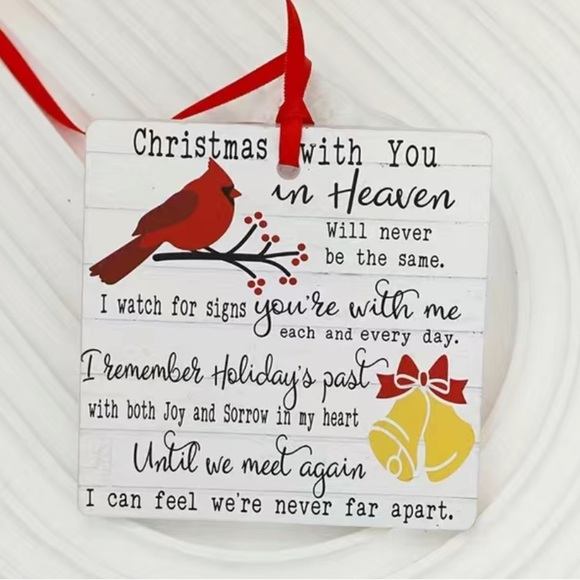 Christmas with You
in Heaven
Will never
be the same.
I watch for signs you're with me
each and every day.
I remember Holiday's past
with both Joy and Sorrow in my heart
Until we meet again
I can feel we're never far apart.